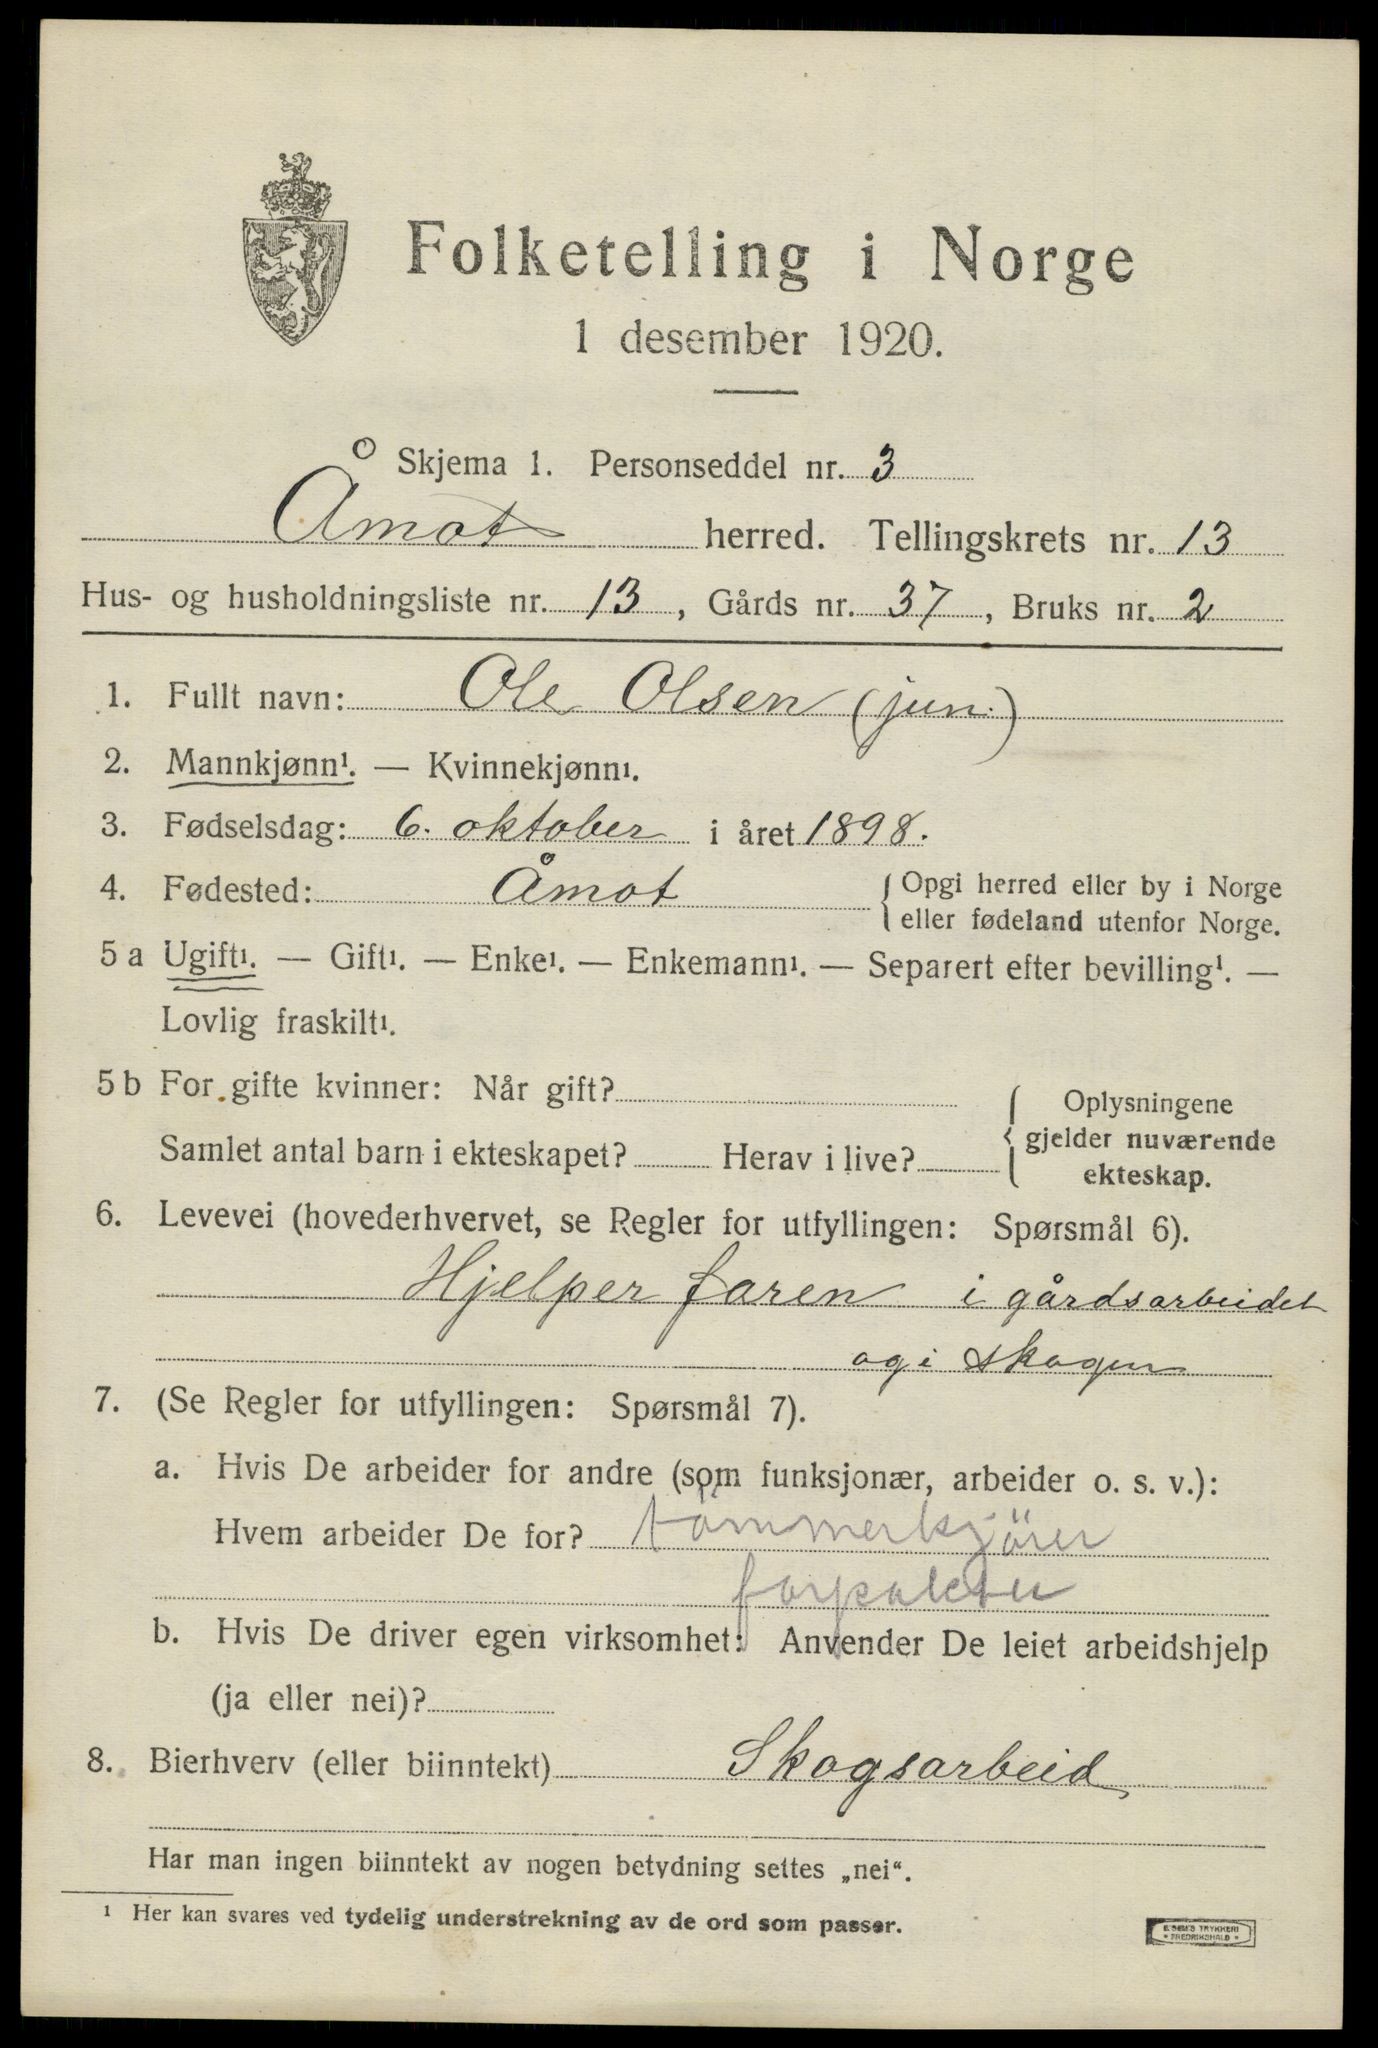 Folketelling i Norge
1 desember 1920.
Skjema 1. Personseddel nr. 3
Åmot herred. Tellingskrets nr. 13
Hus- og husholdningsliste nr. 13, Gårds nr. 37, Bruks nr. 2
1. Fullt navn: Ole Olsen (jun.)
2. Mannkjønn¹. — Kvinnekjønn¹.
3. Fødselsdag: 6. oktober i året 1898.
4. Fødested: Åmot { Opgi herred eller by i Norge
eller fødeland utenfor Norge.
5 a Ugift¹. — Gift¹. — Enke¹. — Enkemann¹. — Separert efter bevilling¹. —
Lovlig fraskilt¹.
5 b For gifte kvinner: Når gift? { Oplysningene
gjelder nuværende
Samlet antal barn i ekteskapet? Herav i live? ekteskap.
6. Levevei (hovederhvervet, se Regler for utfyllingen: Spørsmål 6).
Hjelper faren i gårdsarbeidet
og i skogen
7. (Se Regler for utfyllingen: Spørsmål 7).
a. Hvis De arbeider for andre (som funksjonær, arbeider o. s. v.):
Hvem arbeider De for? tömmerkjörer
forpakter
b. Hvis De driver egen virksomhet: Anvender De leiet arbeidshjelp
(ja eller nei)?
8. Bierhverv (eller biinntekt) Skogsarbeid
Har man ingen biinntekt av nogen betydning settes „nei“.
¹ Her kan svares ved tydelig understrekning av de ord som passer.
E. SEM'S TRYKKERI
• FREDRIKSHALD •